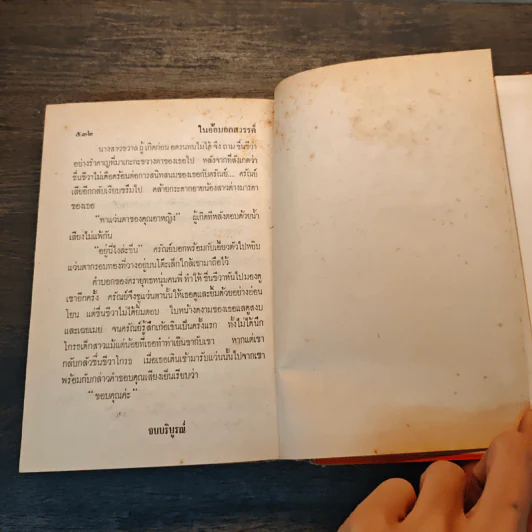 ๕๓๒ ในอ้อมอกสวรรค์
นางสาวชวาล ผู้เกิดก่อน อดรนทนไม่ได้ จึง ถาม ชื่นชีวา
อย่างรำคาญที่มาเกะกะขวางตาของเธอไป หลังจากที่สังเกตว่า
ชื่นชีวาไม่เดือดร้อนต่อการสนิทสนมของเธอกับศรัณย์... ศรัณย์
เสียอีกกลับเงียบขรึมไป คล้ายกระดากอายน้องสาวต่างมารดา
ของเธอ
“หาแว่นตาของคุณอาหญิง” ผู้เกิดทีหลังตอบด้วยน้ำ
เสียงไม่แพ้กัน
“อยู่นี่ไงล่ะชื่น” ศรัณย์บอกพร้อมกับเอี้ยวตัวไปหยิบ
แว่นตากรอบทองที่วางอยู่บนโต๊ะเล็กใกล้เขามาถือไว้
คำบอกของดรายุทธหนุ่มคนพี่ ทำให้ ชื่นชีวาหันไปมองดู
เขาอีกครั้ง ศรัณย์จึงชูแว่นตานั้นให้เธอดูและยิ้มด้วยอย่างอ่อน
โยน แต่ชื่นชีวาไม่ได้ยิ้มตอบ ใบหน้างดงามของเธอแลดูสงบ
และเฉยเมย จนศรัณย์รู้สึกเก้อเขินเป็นครั้งแรก ทั้งไม่ได้นึก
โกรธเด็กสาวแม้แต่น้อยที่เธอทำท่าเย็นชากับเขา หากแต่เขา
กลับกลัวชื่นชีวาโกรธ เมื่อเธอเดินเข้ามารับแว่นนั้นไปจากเขา
พร้อมกับกล่าวคำขอบคุณเสียงเย็นเรียบว่า
“ขอบคุณค่ะ”
จบบริบูรณ์